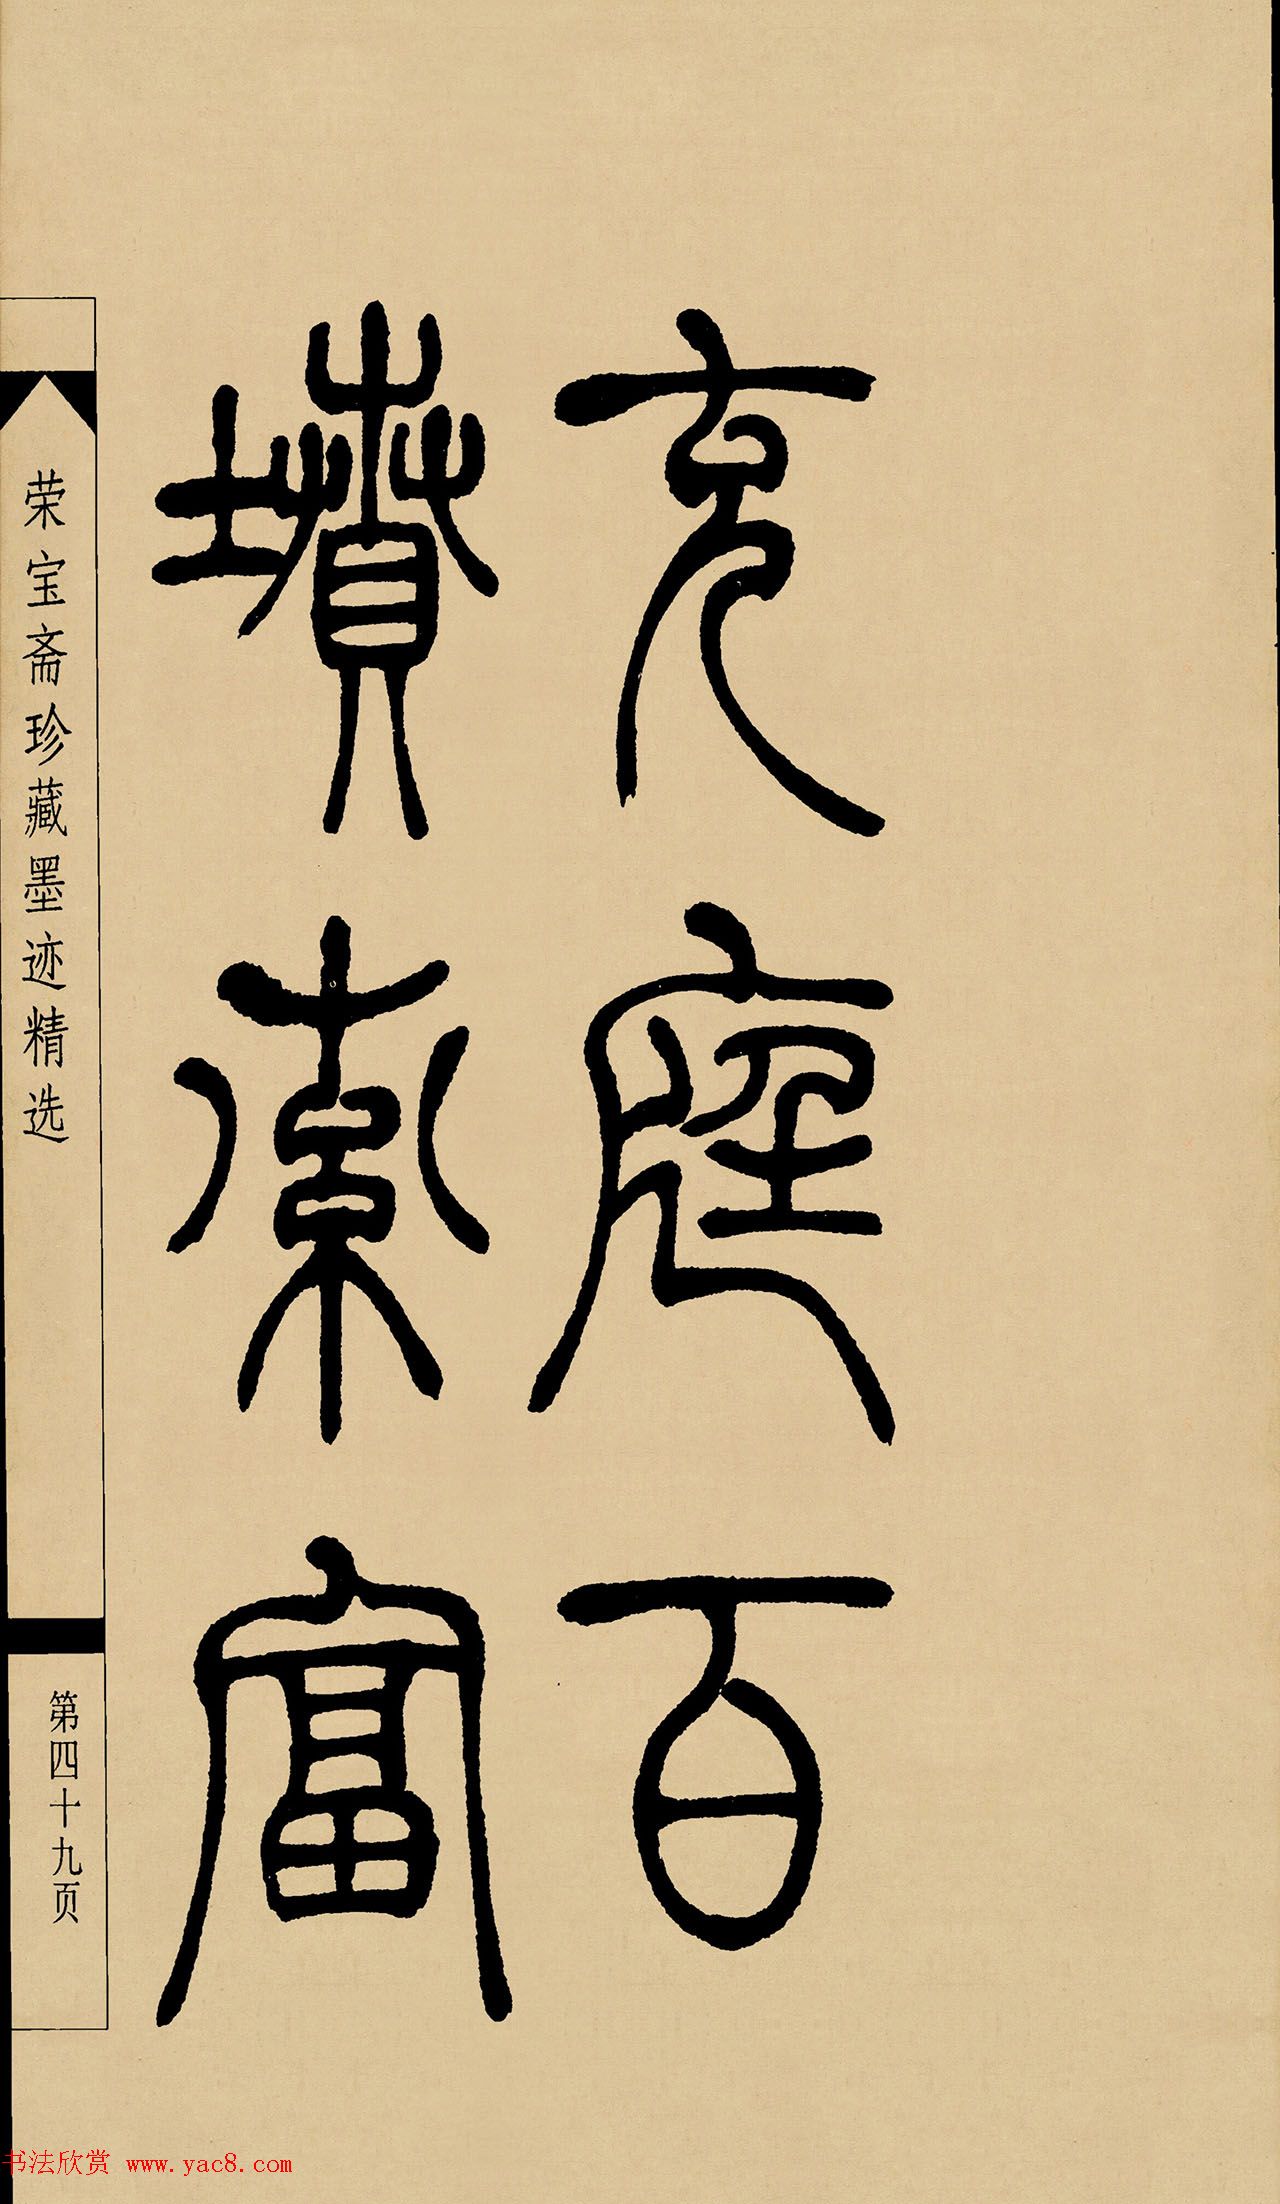 充庭百
墳索富
荣宝斋珍藏墨迹精选
第四十九页
书法欣赏 www.yac8.com